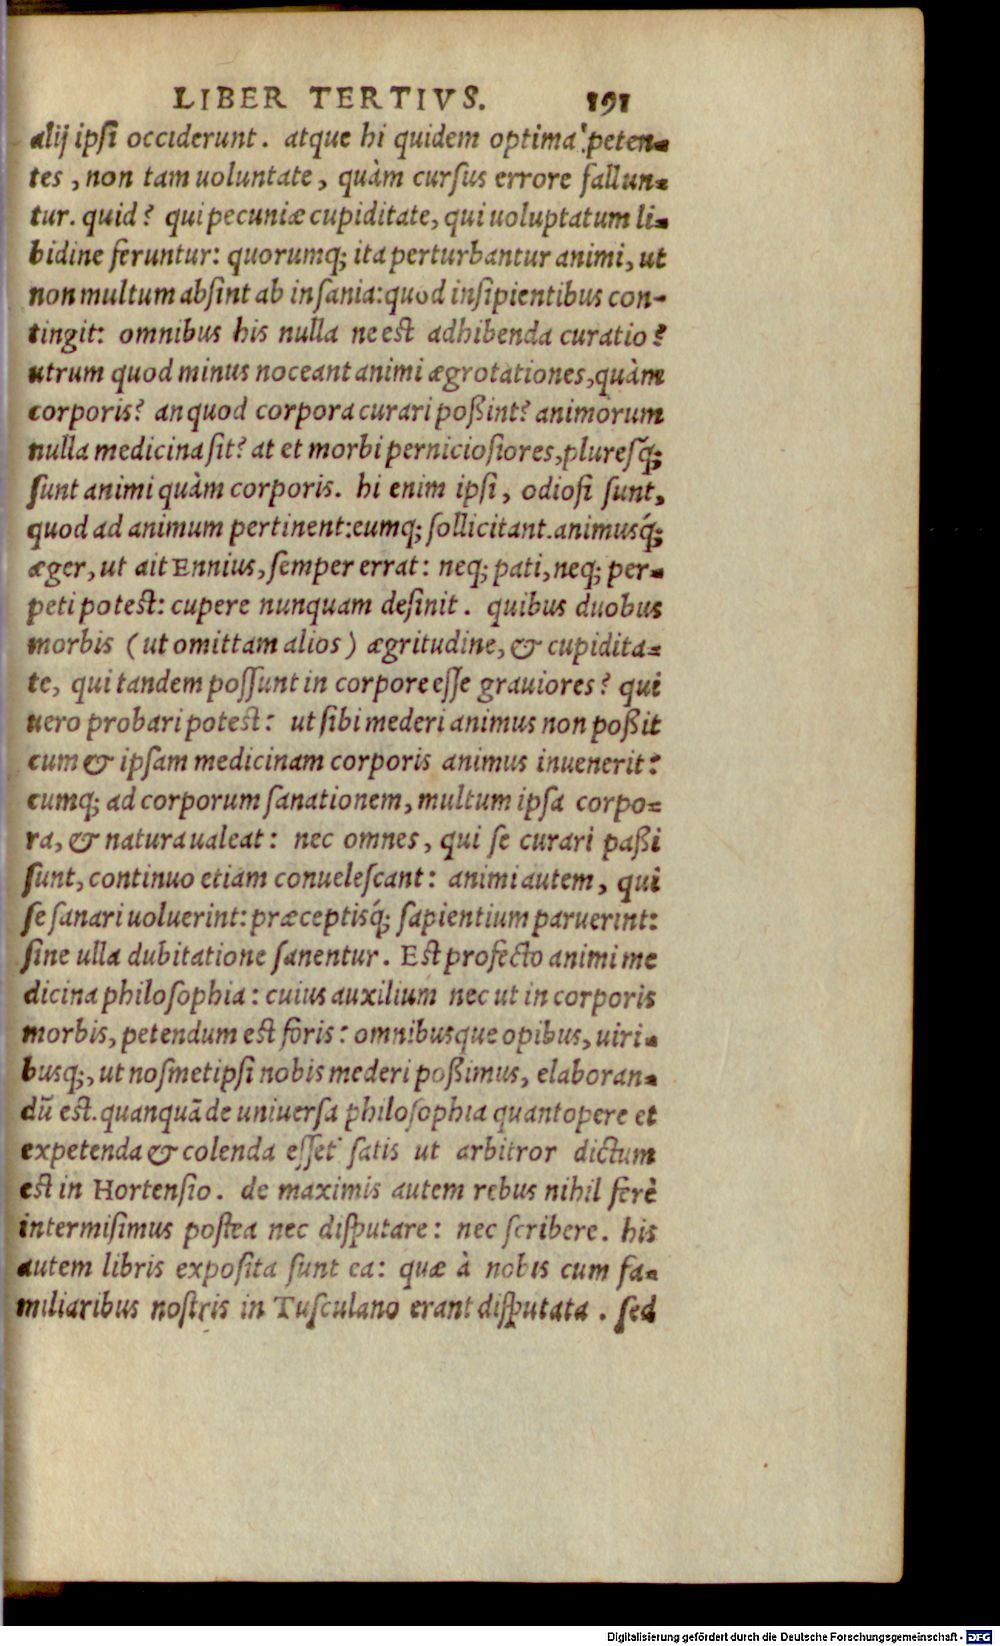 LIBER TERTIVS. 191
alij ipsi occiderunt. atque hi quidem optima peten-
tes, non tam uoluntate, quàm cursus errore fallun-
tur. quid? qui pecuniæ cupiditate, qui uoluptatum li-
bidine feruntur: quorumq; ita perturbantur animi, ut
non multum absint ab insania: quod insipientibus con-
tingit: omnibus his nulla ne est adhibenda curatio?
utrum quod minus noceant animi ægrotationes, quàm
corporis? an quod corpora curari poßint? animorum
nulla medicina sit? at et morbi perniciosiores, pluresq́;
sunt animi quàm corporis. hi enim ipsi, odiosi sunt,
quod ad animum pertinent: eumq; sollicitant. animusq́;
æger, ut ait Ennius, semper errat: neq; pati, neq; per-
peti potest: cupere nunquam desinit. quibus duobus
morbis (ut omittam alios) ægritudine, & cupidita-
te, qui tandem possunt in corpore esse grauiores? qui
uero probari potest: ut sibi mederi animus non poßit
cum & ipsam medicinam corporis animus inuenerit?
cumq; ad corporum sanationem, multum ipsa corpo-
ra, & natura ualeat: nec omnes, qui se curari paßi
sunt, continuo etiam conuelescant: animi autem, qui
se sanari uoluerint: præceptisq́; sapientium paruerint:
sine ulla dubitatione sanentur. Est profecto animi me
dicina philosophia: cuius auxilium nec ut in corporis
morbis, petendum est foris: omnibusque opibus, uiri-
busq;, ut nosmetipsi nobis mederi poßimus, elaboran-
dū est. quanquā de uniuersa philosophia quantopere et
expetenda & colenda esset satis ut arbitror dictum
est in Hortensio. de maximis autem rebus nihil ferè
intermisimus postea nec disputare: nec scribere. his
autem libris exposita sunt ea: quæ à nobis cum fa-
miliaribus nostris in Tusculano erant disputata. sed
Digitalisierung gefördert durch die Deutsche Forschungsgemeinschaft - DFG